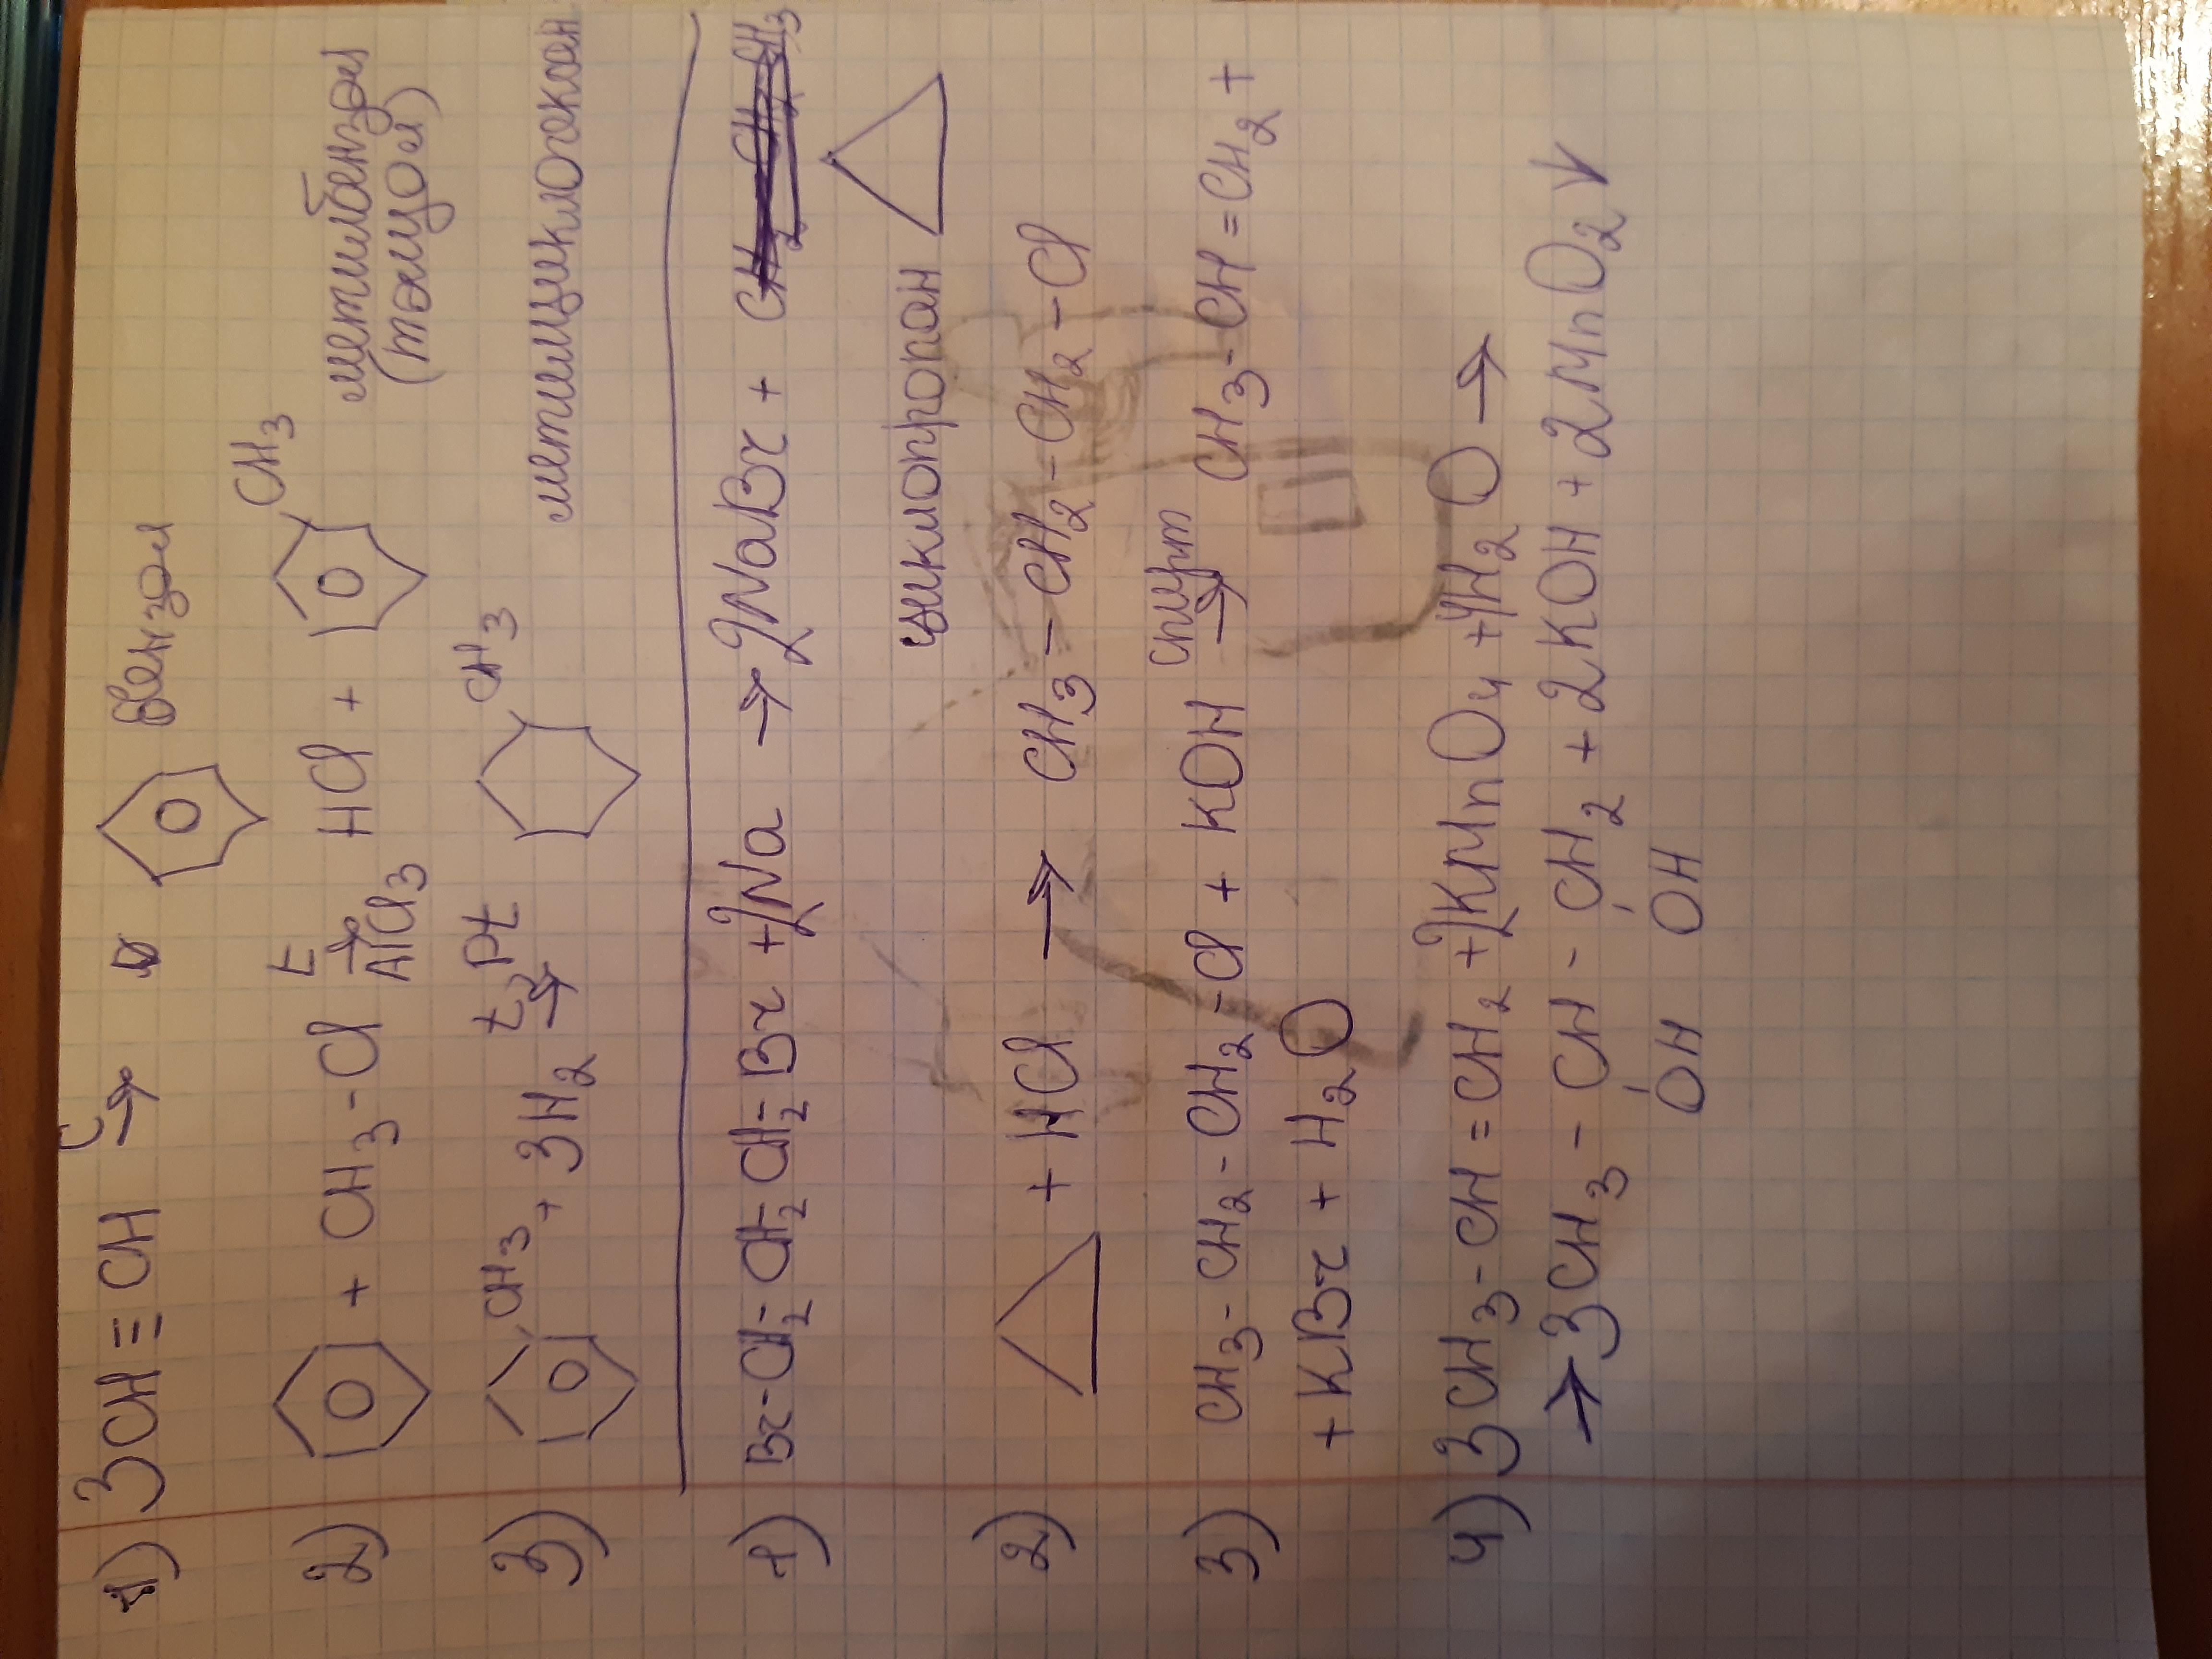 1) 3CH≡CH C → бензол
2) + CH3-Cl t → AlCl3 HCl + CH3 метилбензол (толуол)
3) CH3 + 3H2 t, Pt → CH3 метилциклогексан
1) Br-CH2-CH2-CH2-Br + 2Na → 2NaBr +
циклопропан
2) + HCl → CH3-CH2-CH2-Cl
3) CH3-CH2-CH2-Cl + KOH спирт → CH3-CH=CH2 +
+ KBr + H2O
4) 3CH3-CH=CH2 + 2KMnO4 + 4H2O →
→ 3CH3-CH-CH2 + 2KOH + 2MnO2↓
OH OH